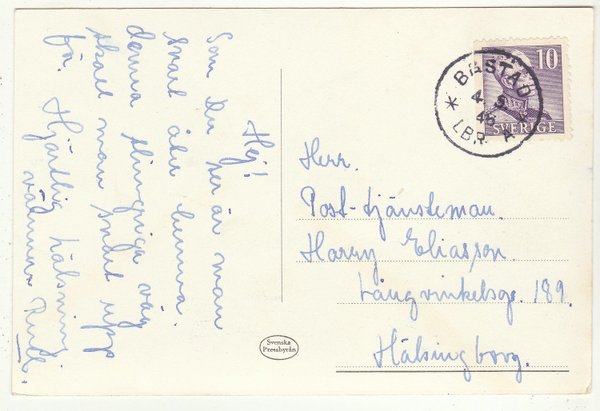 Hej!
Som Du ser är man
snart åter hemma.
denna slingriga väg
skall man snart upp
för. Hjärtlig hälsning
vännen
10
SVERIGE
* BÅSTAD *
4
45
LBR A
Herr.
Post-tjänsteman.
Harry Eliasson
Långvinkelsg. 189.
Hälsingborg.
Svenska
Pressbyrån